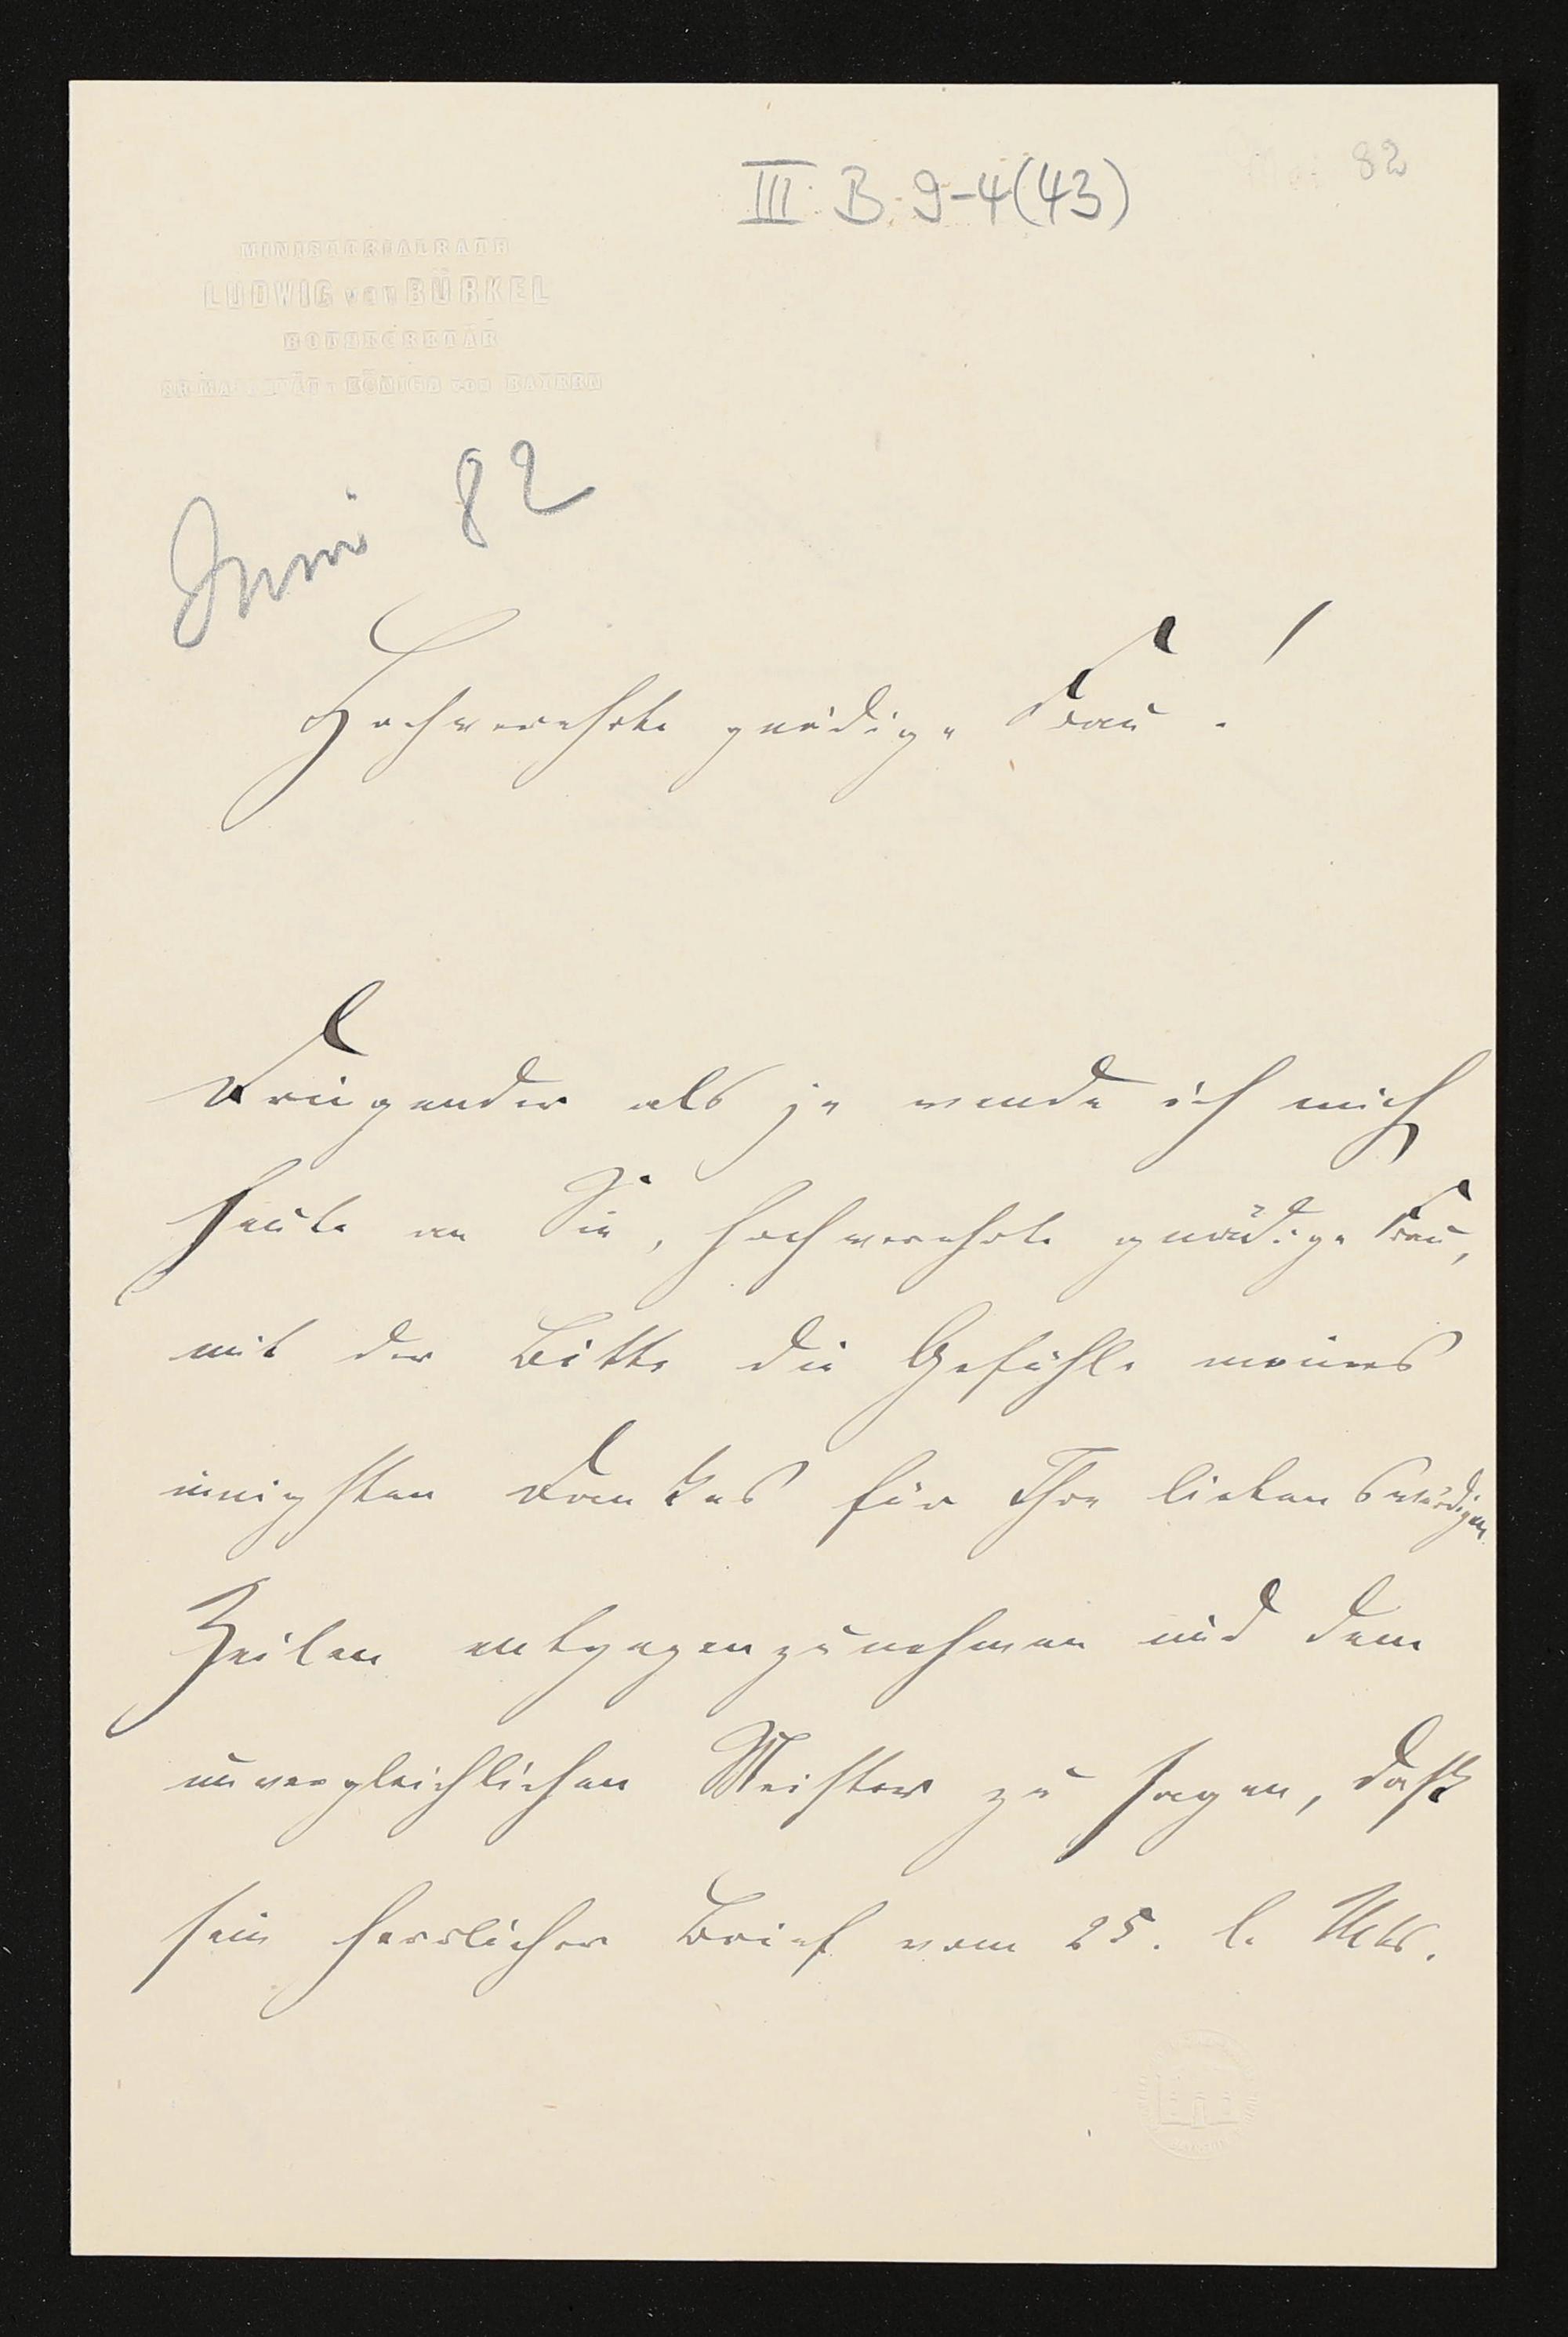 III B 9-4(43)
82
MINISTERIALRATH
LUDWIG von BÜRKEL
HOFSECRETÄR
KÖNIGS von BAYERN
Juni 82
Hochverehrte gnädige Frau!
Dringender als je wende ich mich
heute an Sie, hochverehrte gnädige Frau,
mit der Bitte die Gefühle meines
innigsten Dankes für Ihre liebenswürdigen
Zeilen entgegenzunehmen und dem
unvergleichlichen Meister zu sagen, daß
sein herrlicher Brief vom 25. l. Mts.